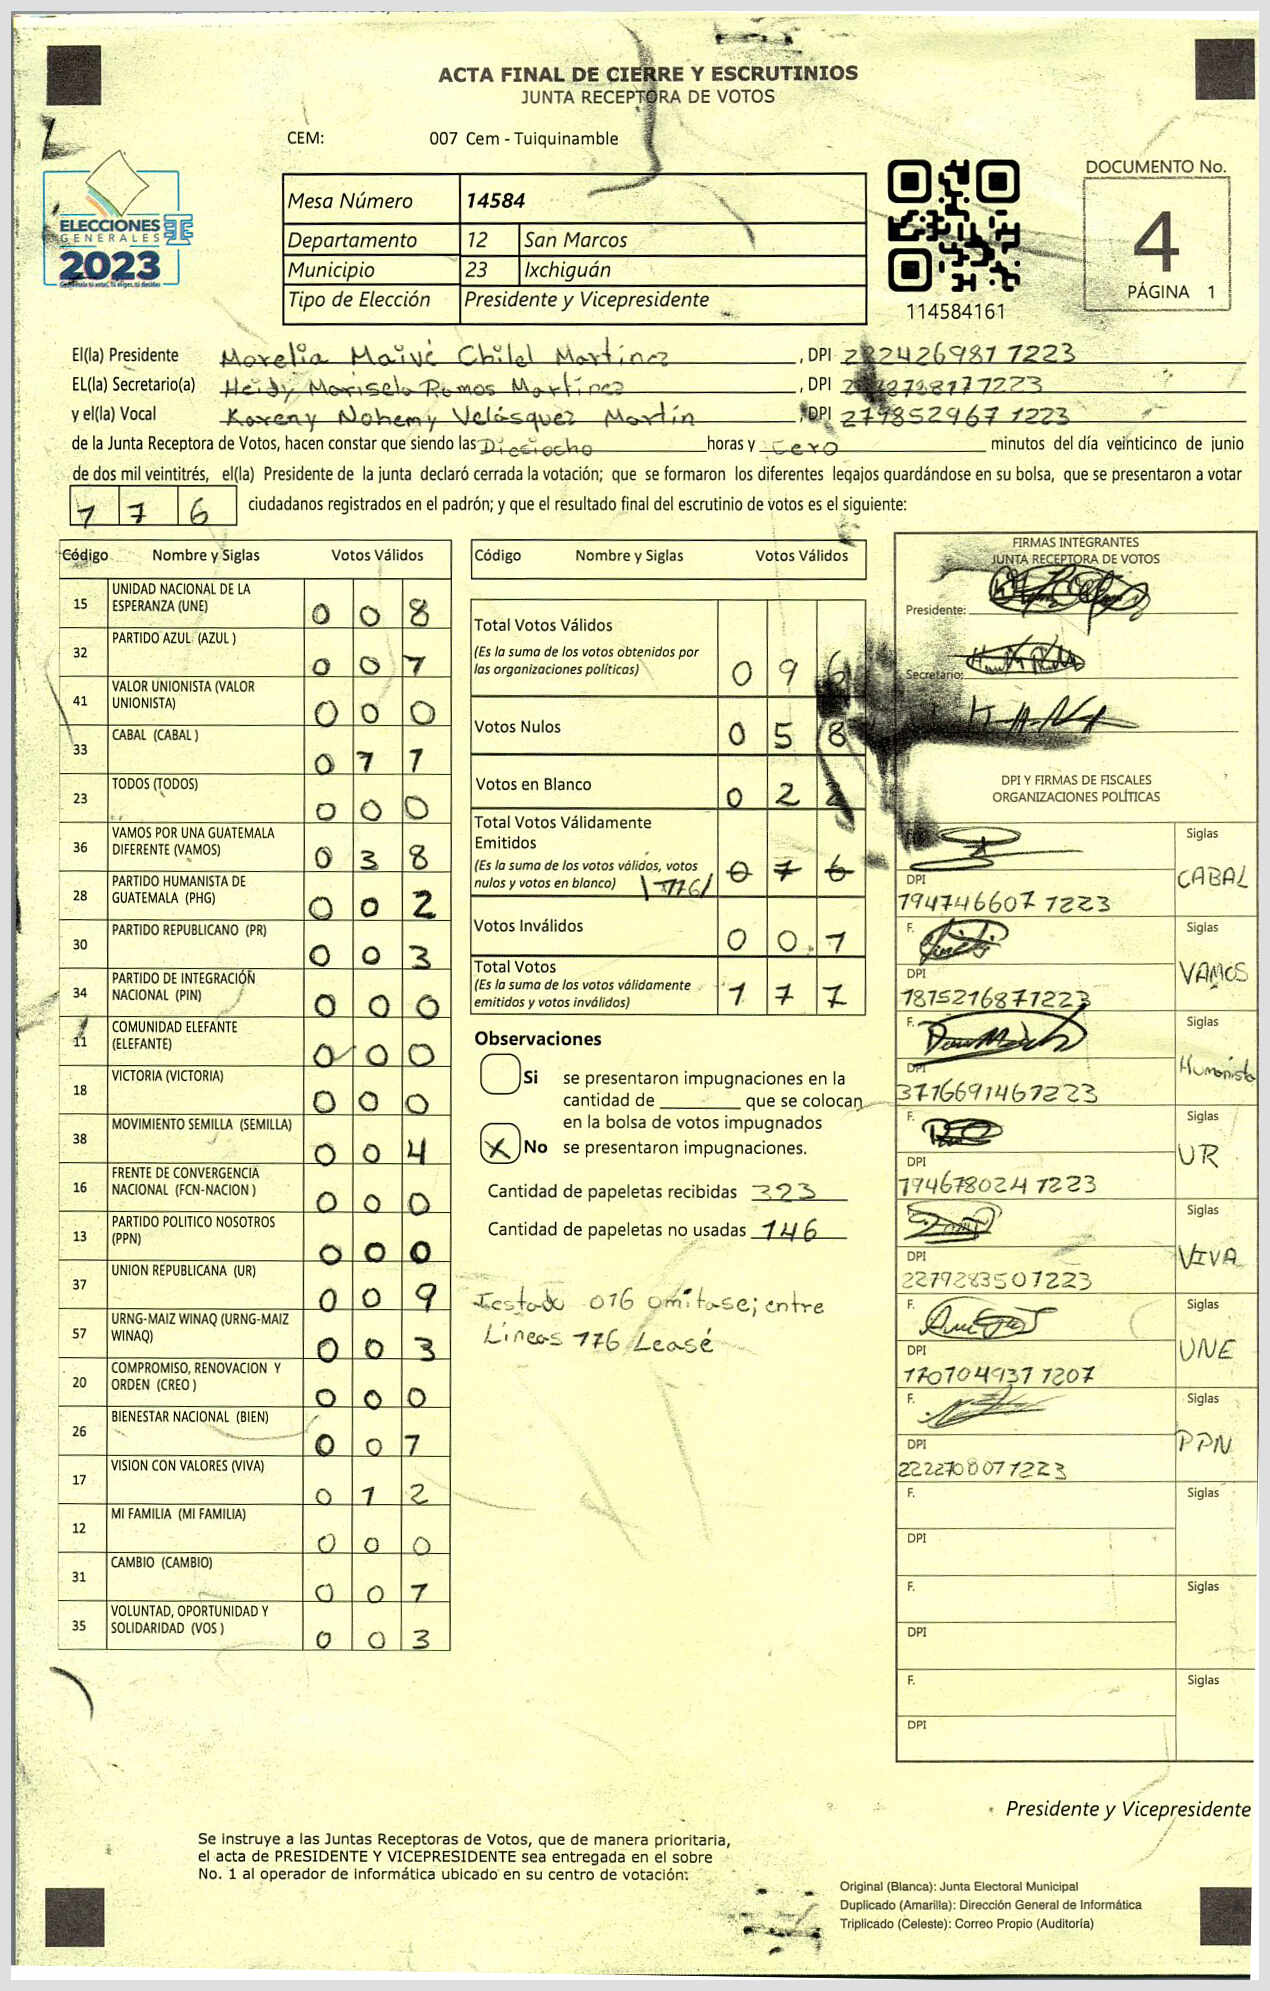 ACTA FINAL DE CIERRE Y ESCRUTINIOS
JUNTA RECEPTORA DE VOTOS
CEM: 007 Cem - Tuiquinamble
ELECCIONES
GENERALES
2023
Mesa Número 14584
Departamento 12 San Marcos
Municipio 23 Ixchiguán
Tipo de Elección Presidente y Vicepresidente
114584161
DOCUMENTO No.
4
PÁGINA 1
El(la) Presidente Morelia Maivé Chilel Martínez, DPI
EL(la) Secretario(a) Heidy Marisela Ramos Martínez, DPI
y el(la) Vocal Kareny Nohemy Velásquez Martín, DPI 279852967 1223
de la Junta Receptora de Votos, hacen constar que siendo las Dieciocho horas y cero minutos del día veinticinco de junio
de dos mil veintitrés, el(la) Presidente de la junta declaró cerrada la votación; que se formaron los diferentes legajos guardándose en su bolsa, que se presentaron a votar
1 7 6 ciudadanos registrados en el padrón; y que el resultado final del escrutinio de votos es el siguiente:
Código Nombre y Siglas Votos Válidos
15 UNIDAD NACIONAL DE LA
ESPERANZA (UNE) 0 0 8
32 PARTIDO AZUL (AZUL ) 0 0 1
41 VALOR UNIONISTA (VALOR
UNIONISTA) 0 0 0
33 CABAL (CABAL ) 0 1 1
23 TODOS (TODOS) 0 0 0
36 VAMOS POR UNA GUATEMALA
DIFERENTE (VAMOS) 0 3 8
28 PARTIDO HUMANISTA DE
GUATEMALA (PHG) 0 0 2
30 PARTIDO REPUBLICANO (PR) 0 0 3
34 PARTIDO DE INTEGRACIÓN
NACIONAL (PIN) 0 0 0
11 COMUNIDAD ELEFANTE
(ELEFANTE) 0 0 0
18 VICTORIA (VICTORIA) 0 0 0
38 MOVIMIENTO SEMILLA (SEMILLA) 0 0 4
16 FRENTE DE CONVERGENCIA
NACIONAL (FCN-NACION ) 0 0 0
13 PARTIDO POLITICO NOSOTROS
(PPN) 0 0 0
37 UNION REPUBLICANA (UR) 0 0 9
57 URNG-MAIZ WINAQ (URNG-MAIZ
WINAQ) 0 0 3
20 COMPROMISO, RENOVACION Y
ORDEN (CREO ) 0 0 0
26 BIENESTAR NACIONAL (BIEN) 0 0 1
17 VISION CON VALORES (VIVA) 0 1 2
12 MI FAMILIA (MI FAMILIA) 0 0 0
31 CAMBIO (CAMBIO) 0 0 1
35 VOLUNTAD, OPORTUNIDAD Y
SOLIDARIDAD (VOS ) 0 0 3
Código Nombre y Siglas Votos Válidos
Total Votos Válidos
(Es la suma de los votos obtenidos por
las organizaciones políticas) 0 9 6
Votos Nulos 0 5 8
Votos en Blanco 0 2 2
Total Votos Válidamente
Emitidos
(Es la suma de los votos válidos, votos
nulos y votos en blanco) |176| 0 7 6
Votos Inválidos 0 0 1
Total Votos
(Es la suma de los votos válidamente
emitidos y votos inválidos) 1 7 7
Observaciones
Si se presentaron impugnaciones en la
cantidad de ________ que se colocan
en la bolsa de votos impugnados
X No se presentaron impugnaciones.
Cantidad de papeletas recibidas 323
Cantidad de papeletas no usadas 146
Testado 076 omitase; entre
Líneas 176 Leasé
FIRMAS INTEGRANTES
JUNTA RECEPTORA DE VOTOS
Presidente:
Secretario:
DPI Y FIRMAS DE FISCALES
ORGANIZACIONES POLÍTICAS
Siglas
CABAL
DPI
194746607 1223
F. Siglas
VAMOS
DPI
181521687 1223
F. Siglas
Humanista
DPI
371669146 1223
F. Siglas
UR
DPI
194678024 1223
F. Siglas
VIVA
DPI
227928350 1223
F. Siglas
UNE
DPI
170704937 1207
F. Siglas
PPN
DPI
222270807 1223
F. Siglas
DPI
F. Siglas
DPI
F. Siglas
DPI
Presidente y Vicepresidente
Se instruye a las Juntas Receptoras de Votos, que de manera prioritaria,
el acta de PRESIDENTE Y VICEPRESIDENTE sea entregada en el sobre
No. 1 al operador de informática ubicado en su centro de votación.
Original (Blanca): Junta Electoral Municipal
Duplicado (Amarilla): Dirección General de Informática
Triplicado (Celeste): Correo Propio (Auditoría)